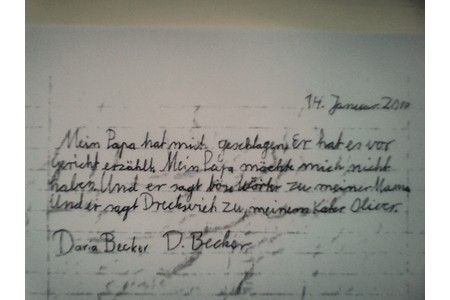 14. Januar 2010
Mein Papa hat mich geschlagen. Er hat es vor
Gericht erzählt. Mein Papa möchte mich nicht
haben. Und er sagt böse Wörter zu meiner Mama
Und er sagt Drecksvieh zu meinem Kater Oliver.
Daria Becker D. Becker